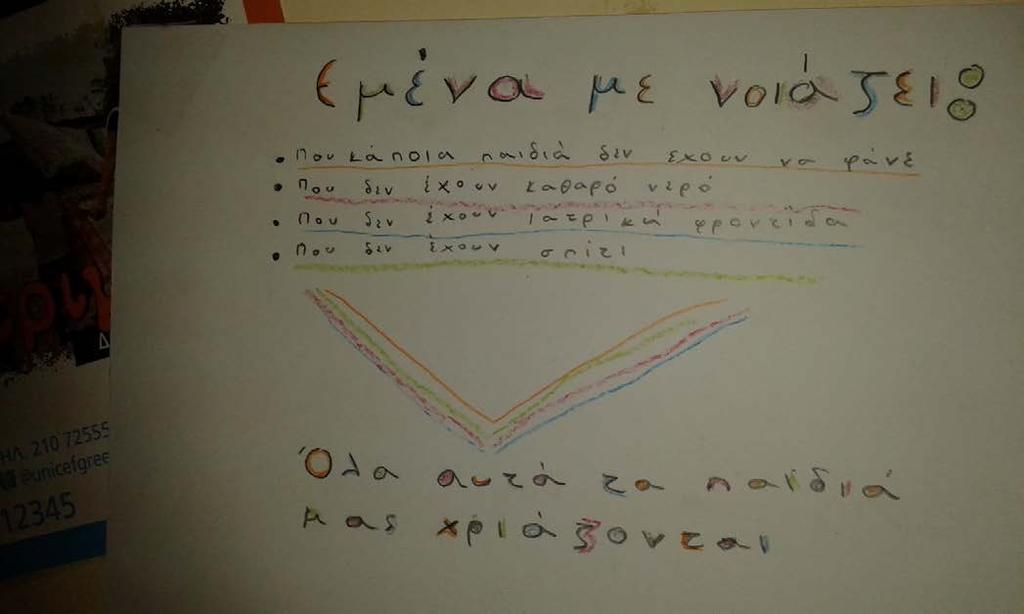 Εμένα με νοιάζει:
• Που κάποια παιδιά δεν έχουν να φάνε
• Που δεν έχουν καθαρό νερό
• Που δεν έχουν ιατρική φροντίδα
• Που δεν έχουν σπίτι
Όλα αυτά τα παιδιά
μας χριάζονται
ΤΗΛ. 210 72555
@unicefgree
12345